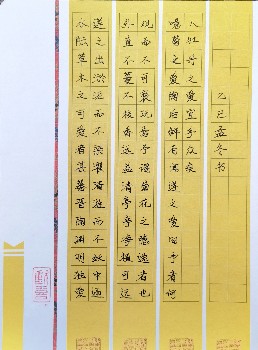 水陆草木之可爱者甚蕃晋陶渊明独爱
莲之出淤泥而不染濯清涟而不妖中通
外直不蔓不枝香远益清亭亭净植可远
观而不可亵玩焉予谓菊花之隐逸者也
噫菊之爱陶后鲜有闻莲之爱同予者何
人牡丹之爱宜乎众矣
乙巳孟冬书